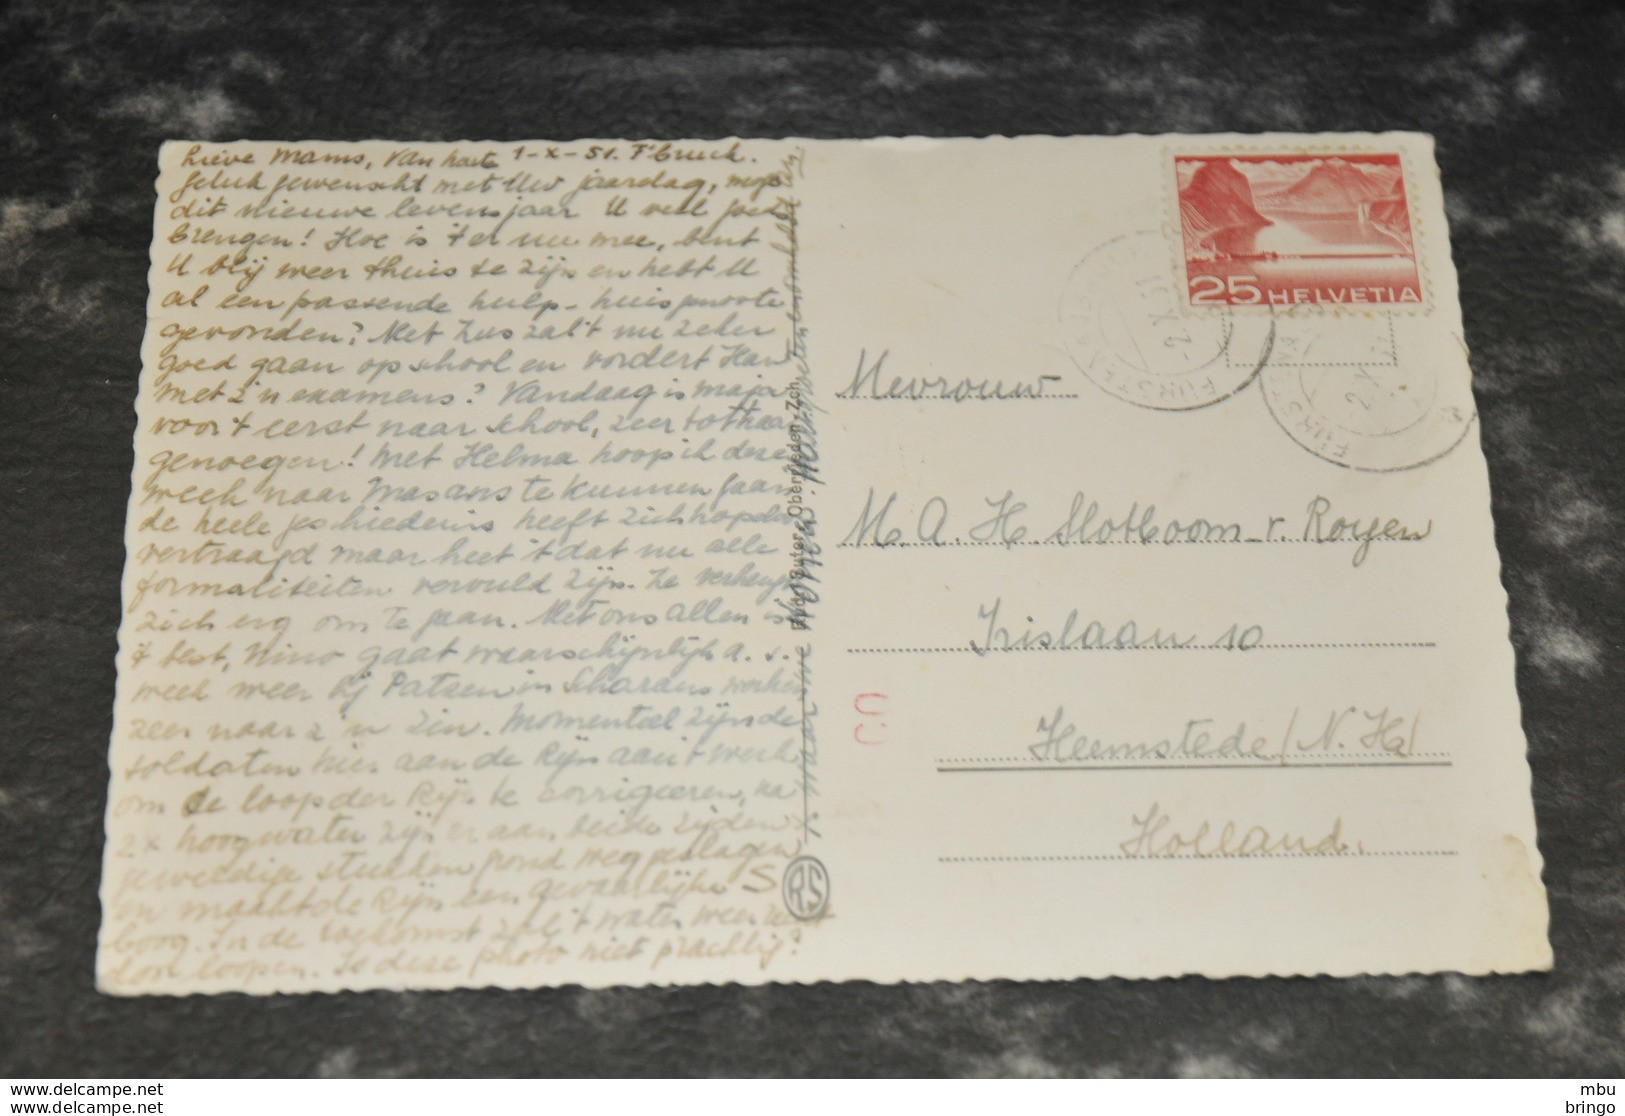 Lieve Mams, Van harte 1-X-51. F'bruck.
geluk gewenscht met Uw jaardag, moge
dit nieuwe levensjaar U veel goeds
brengen! Hoe is 't er nu mee, bent
U blij weer thuis te zijn en hebt U
al een passende hulp-huisgenoote
gevonden? Met Zus zal 't nu zeker
goed gaan op school en vordert Han
met z'n examens? Vandaag is maja
voor 't eerst naar school, zeer tot haar
genoegen! Met Helma hoop ik deze
week naar Masans te kunnen gaan
de heele geschiedenis heeft zich
vertraagd maar heet 't dat nu alle
formaliteiten vervuld zijn. Ze verheugt
zich erg om te gaan. Met ons allen is
't best, Nino gaat waarschijnlijk a.s.
week weer bij Patzen in Scharans werken
zeer naar z'n zin. Momenteel zijn de
soldaten hier aan de Rijn aan 't werk
om de loop der Rijn te corrigeeren, na
2x hoog water zijn er aan beide zijden
geweldige stukken grond weggeslagen
en maakt de Rijn een gevaarlijke S
boog. In de toekomst zal 't water weer recht
door loopen. Is deze photo niet prachtig?
Rud. Suter, Oberrieden-Zch.
RS
25 HELVETIA
FÜRSTENAUBRUCK
-2.X.51
FÜRSTENAUBRUCK
-2.X.51
Mevrouw
M. A. H. Slotboom-v. Royen
Irislaan 10
Heemstede (N.H.)
Holland.
www.delcampe.net
www.delcampe.net
mbu
bringo